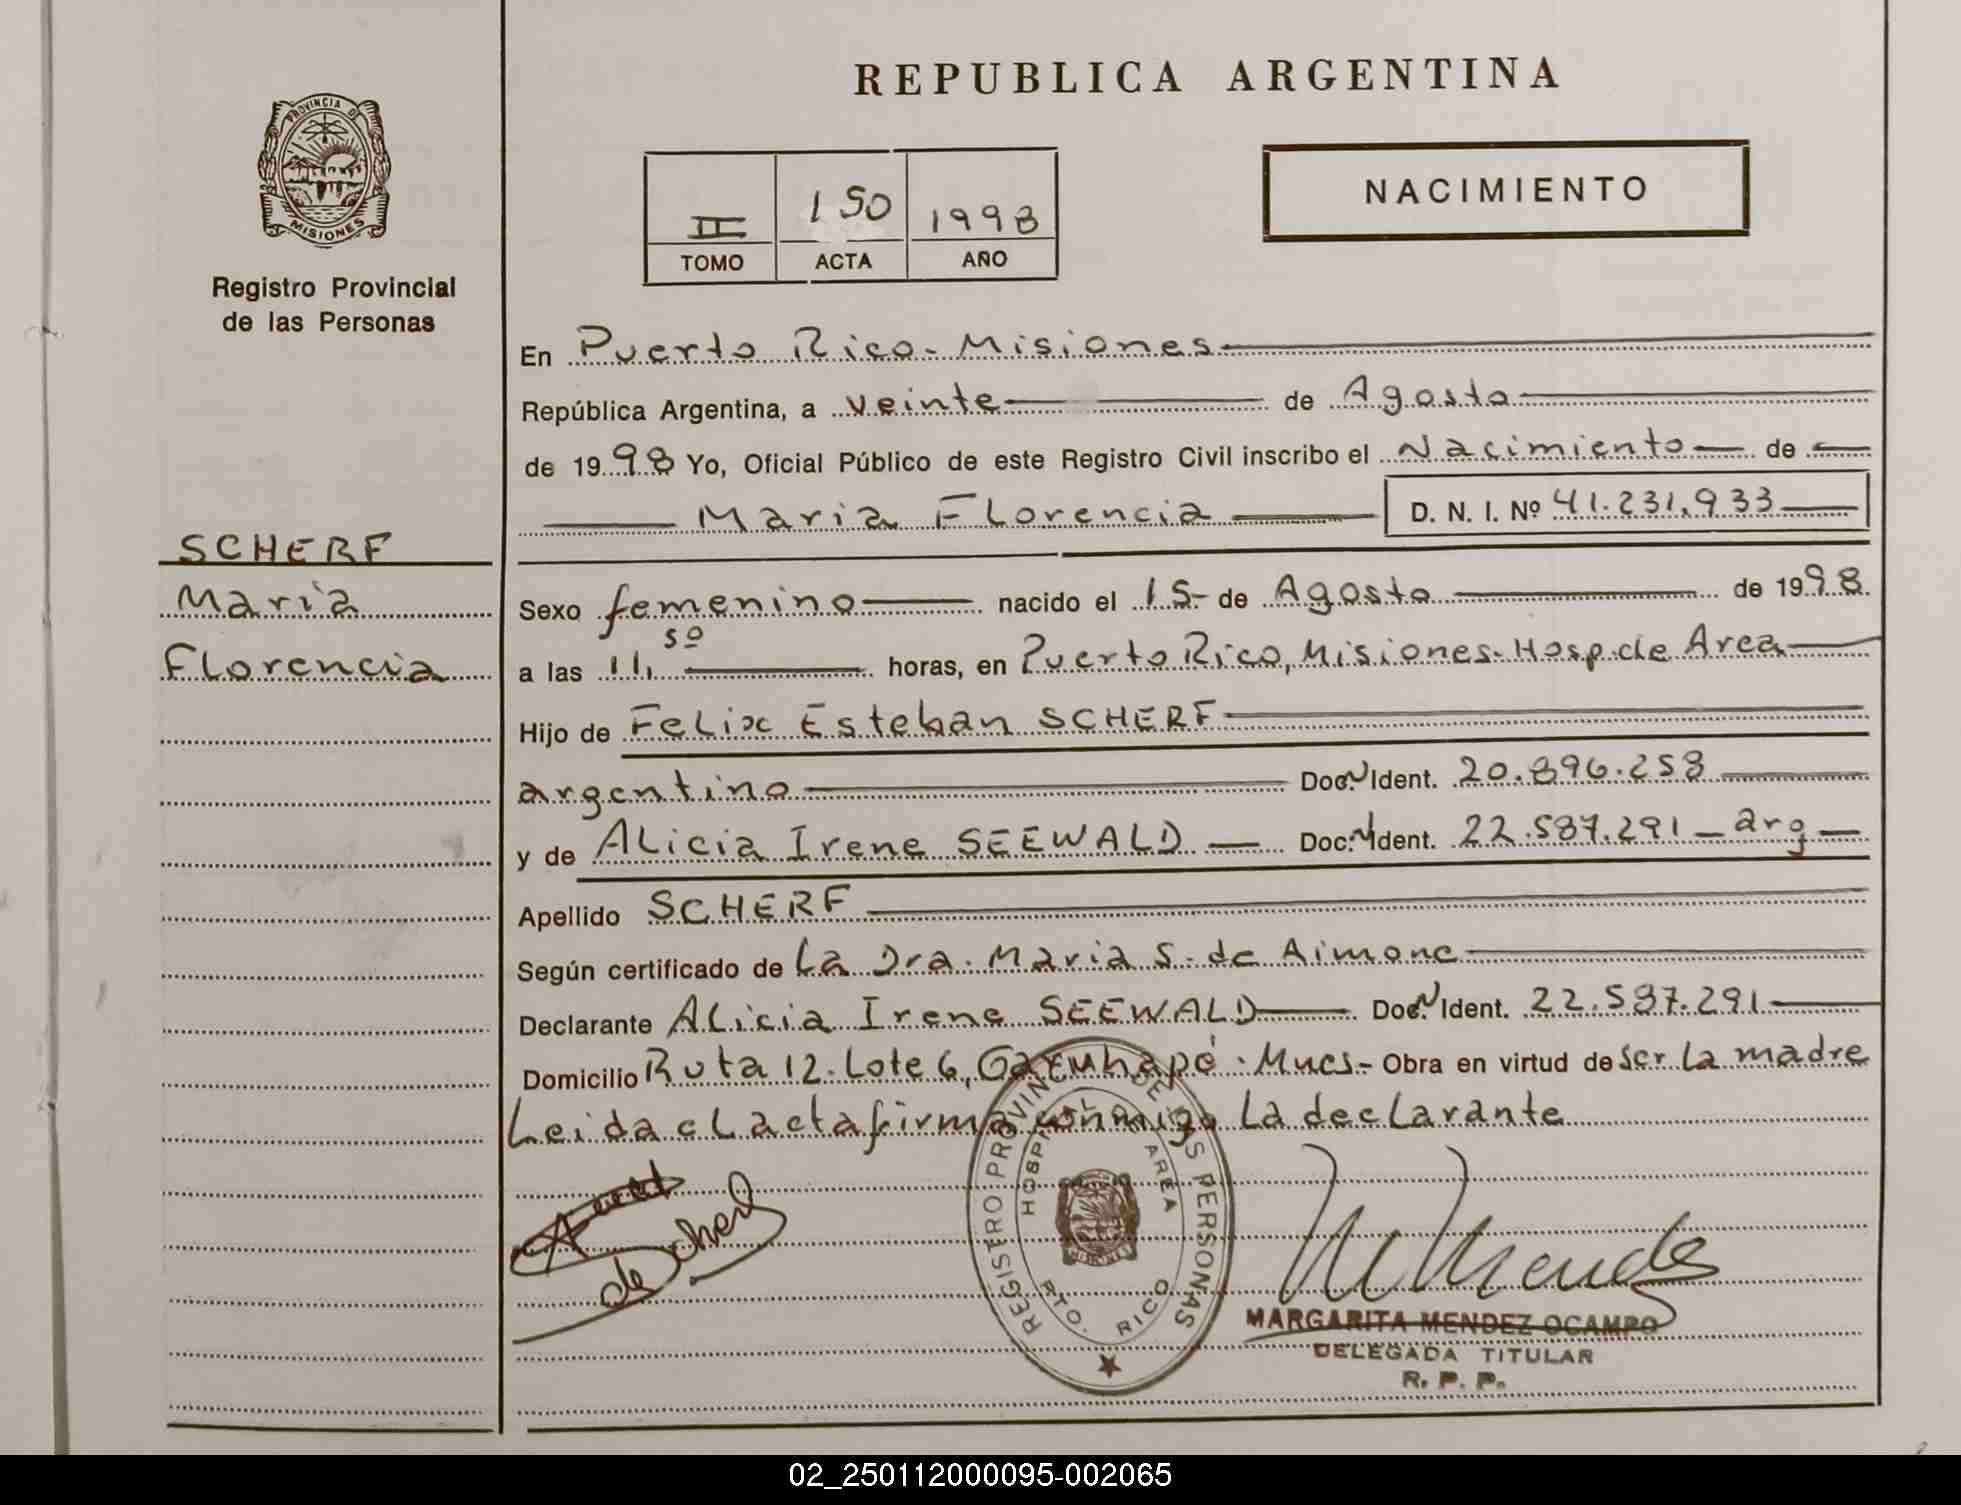 REPUBLICA ARGENTINA
PROVINCIA DE MISIONES
Registro Provincial
de las Personas
II 150 1998
TOMO ACTA AÑO
NACIMIENTO
En Puerto Rico - Misiones
República Argentina, a veinte de Agosto
de 1998 Yo, Oficial Público de este Registro Civil inscribo el Nacimiento de
Maria Florencia D. N. I. Nº 41.231.933
SCHERF
Maria
Florencia
Sexo femenino nacido el 15- de Agosto de 1998
a las 11,50 horas, en Puerto Rico, Misiones- Hosp. de Area
Hijo de Felix Esteban SCHERF
argentino Doc. N Ident. 20.896.258
y de Alicia Irene SEEWALD Doc. N Ident. 22.587.291 - arg
Apellido SCHERF
Según certificado de La Dra. Maria S. de Aimone
Declarante Alicia Irene SEEWALD Doc. N Ident. 22.587.291
Domicilio Ruta 12. Lote 6, Garuhapé. Mnes- Obra en virtud de ser La madre
Leida el acta firma conmigo La declarante
de Scherf
REGISTRO PROVINCIAL DE LAS PERSONAS
HOSPITAL DE AREA
PTO. RICO
M Mendez
MARGARITA MENDEZ OCAMPO
DELEGADA TITULAR
R. P. P.
02_250112000095-002065